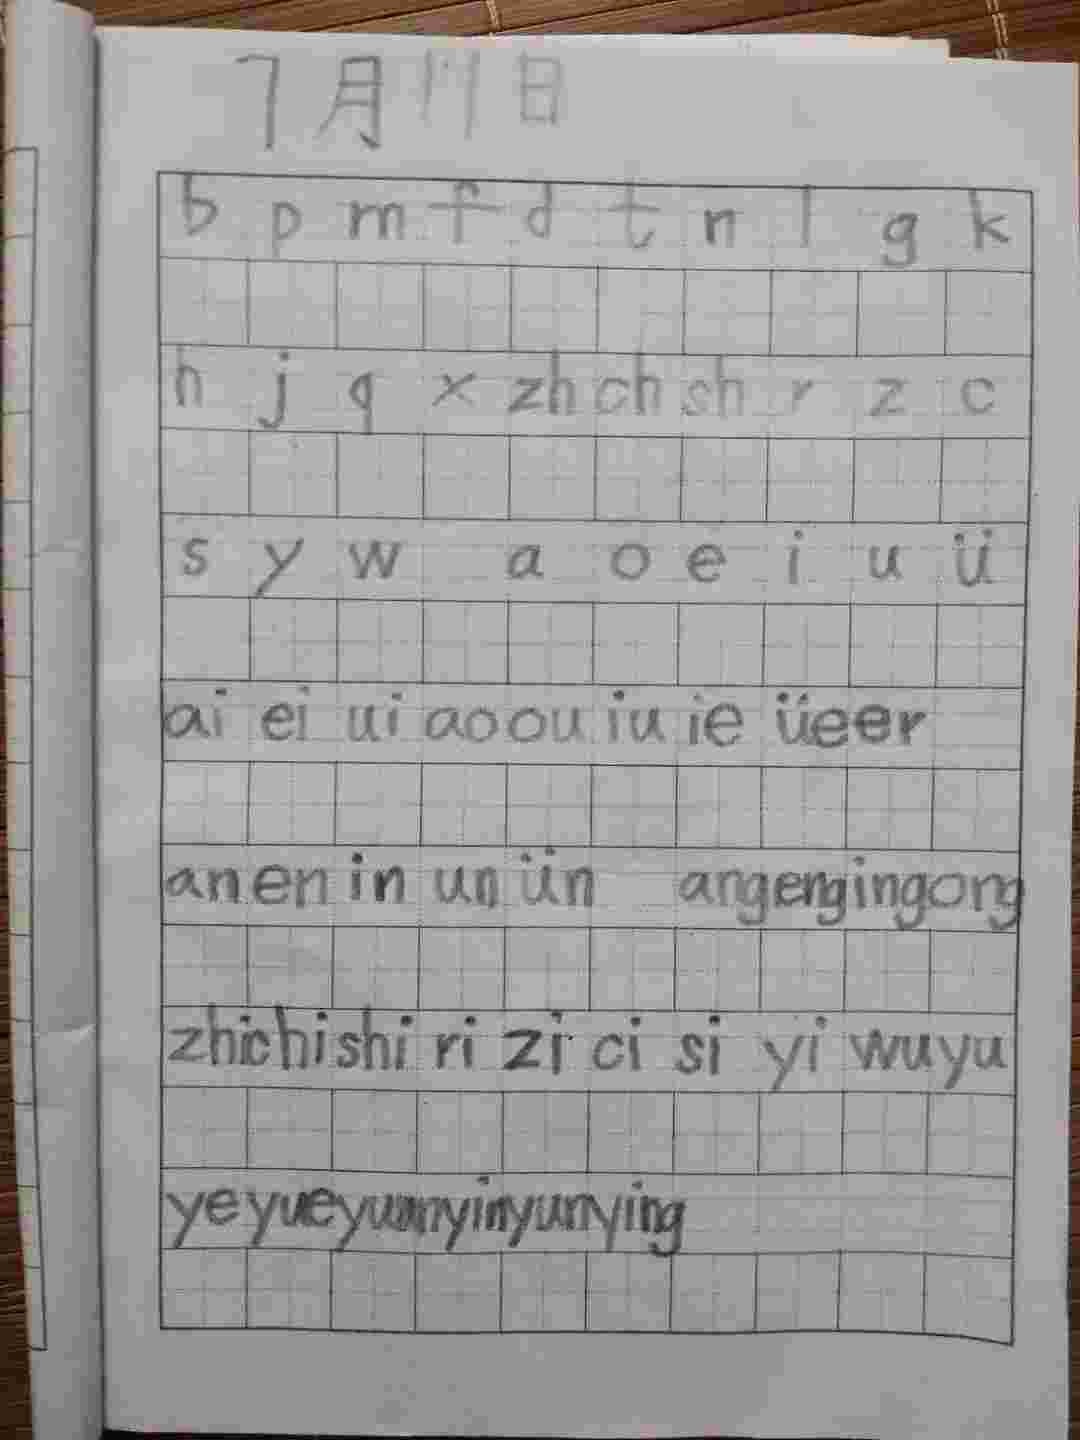 7月11日
b p m f d t n l g k
h j q x zh ch sh r z c
s y w a o e i u ü
ai ei ui ao ou iu ie üe er
an en in un ün ang eng ing ong
zhi chi shi ri zi ci si yi wu yu
ye yue yuan yin yun ying